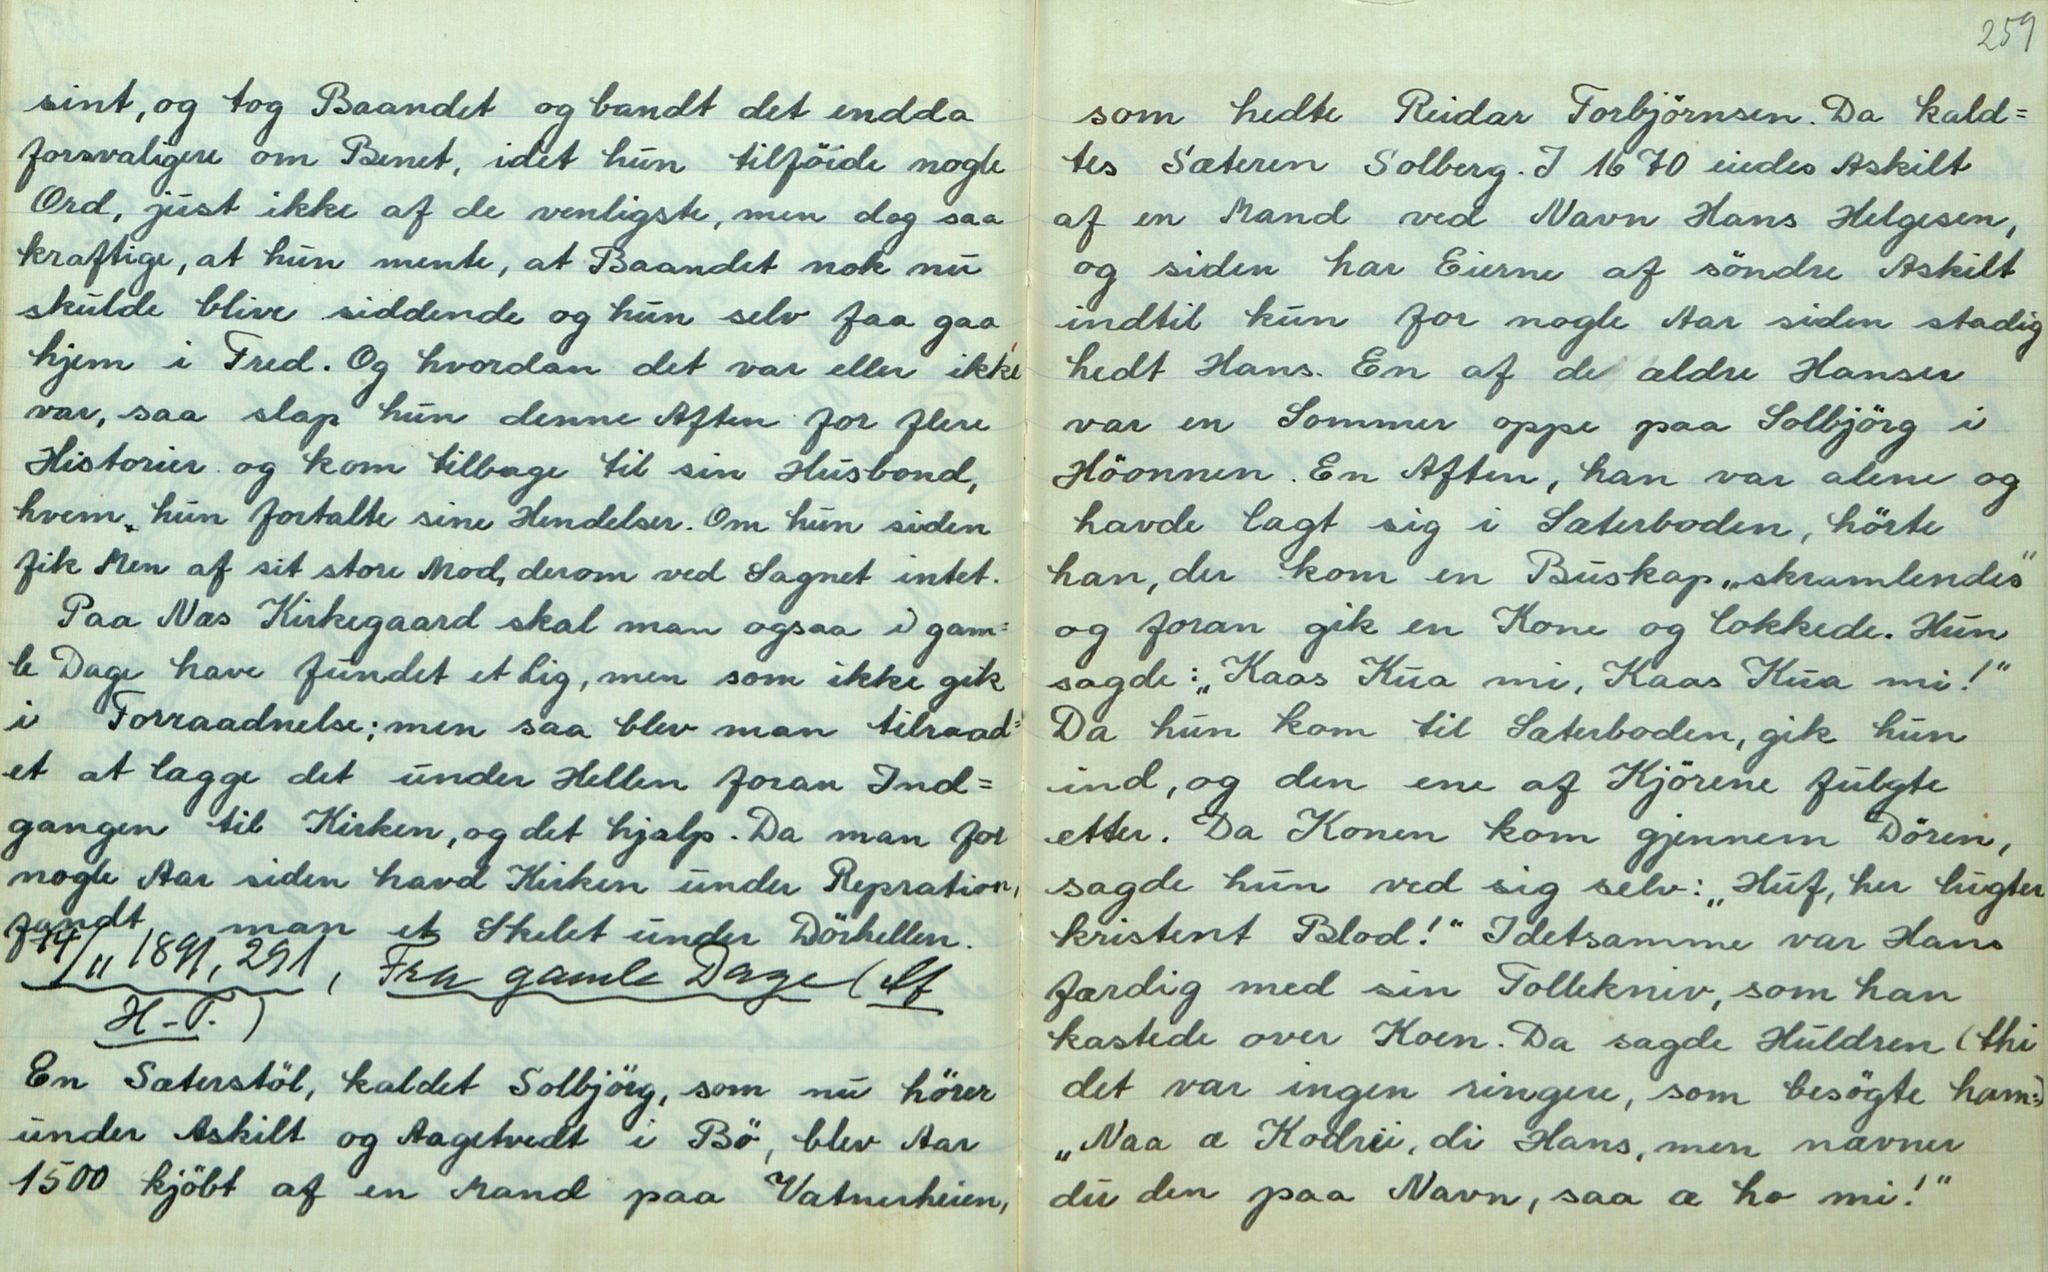 sint, og tog Baandet og bandt det endda
forsvaligere om Benet, idet hun tilföide nogle
Ord, just ikke af de venligste, men dog saa
kraftige, at hun mente, at Baandet nok nu
skulde blive siddende og hun selv faa gaa
hjem i Fred. Og hvordan det var eller ikke
var, saa slap hun denne Aften for flere
Historier og kom tilbage til sin Husbond,
hvem hun fortalte sine Hendelser. Om hun siden
fik Men af sit store Mod, derom ved Sagnet intet.
Paa Næs Kirkegaard skal man ogsaa i gam=
le Dage have fundet et Lig, men som ikke gik
i Forraadnelse; men saa blev man tilraad=
et at lægge det under Hellen foran Ind=
gangen til Kirken, og det hjalp. Da man for
nogle Aar siden havd Kirken under Repration,
fandt man et Skelet under Dörhellen.
14/11 1891, 291, Fra gamle Dage (Af
H-T.)
En Sæterstöl, kaldet Solbjörg, som nu hörer
under Askilt og Aagetvedt i Bö, blev Aar
1500 kjöbt af en Mand paa Vatnerheien,
259
som hedte Reidar Torbjörnsen. Da kald=
tes Sæteren Solberg. I 1670 eiedes Askilt
af en Mand ved Navn Hans Helgesen,
og siden har Eierne af söndre Askilt
indtil kun for nogle Aar siden stadig
hedt Hans. En af de ældre Hanser
var en Sommer oppe paa Solbjörg i
Höonnen. En Aften, han var alene og
havde lagt sig i Sæterboden, hörte
han, der kom en Buskap „skramlendes"
og foran gik en Kone og lokkede. Hun
sagde: „Kaas Kua mi, Kaas Kua mi!"
Da hun kom til Sæterboden, gik hun
ind, og den ene af Kjörene fulgte
etter. Da Konen kom gjennem Dören,
sagde hun ved sig selv: „Huf, her lugter
kristent Blod!" Idetsamme var Hans
færdig med sin Tollekniv, som han
kastede over Koen. Da sagde Huldren (thi
det var ingen ringere, som besögte ham:)
„Naa æ Kodrii, di Hans, men nævner
du den paa Navn, saa æ ho mi!"